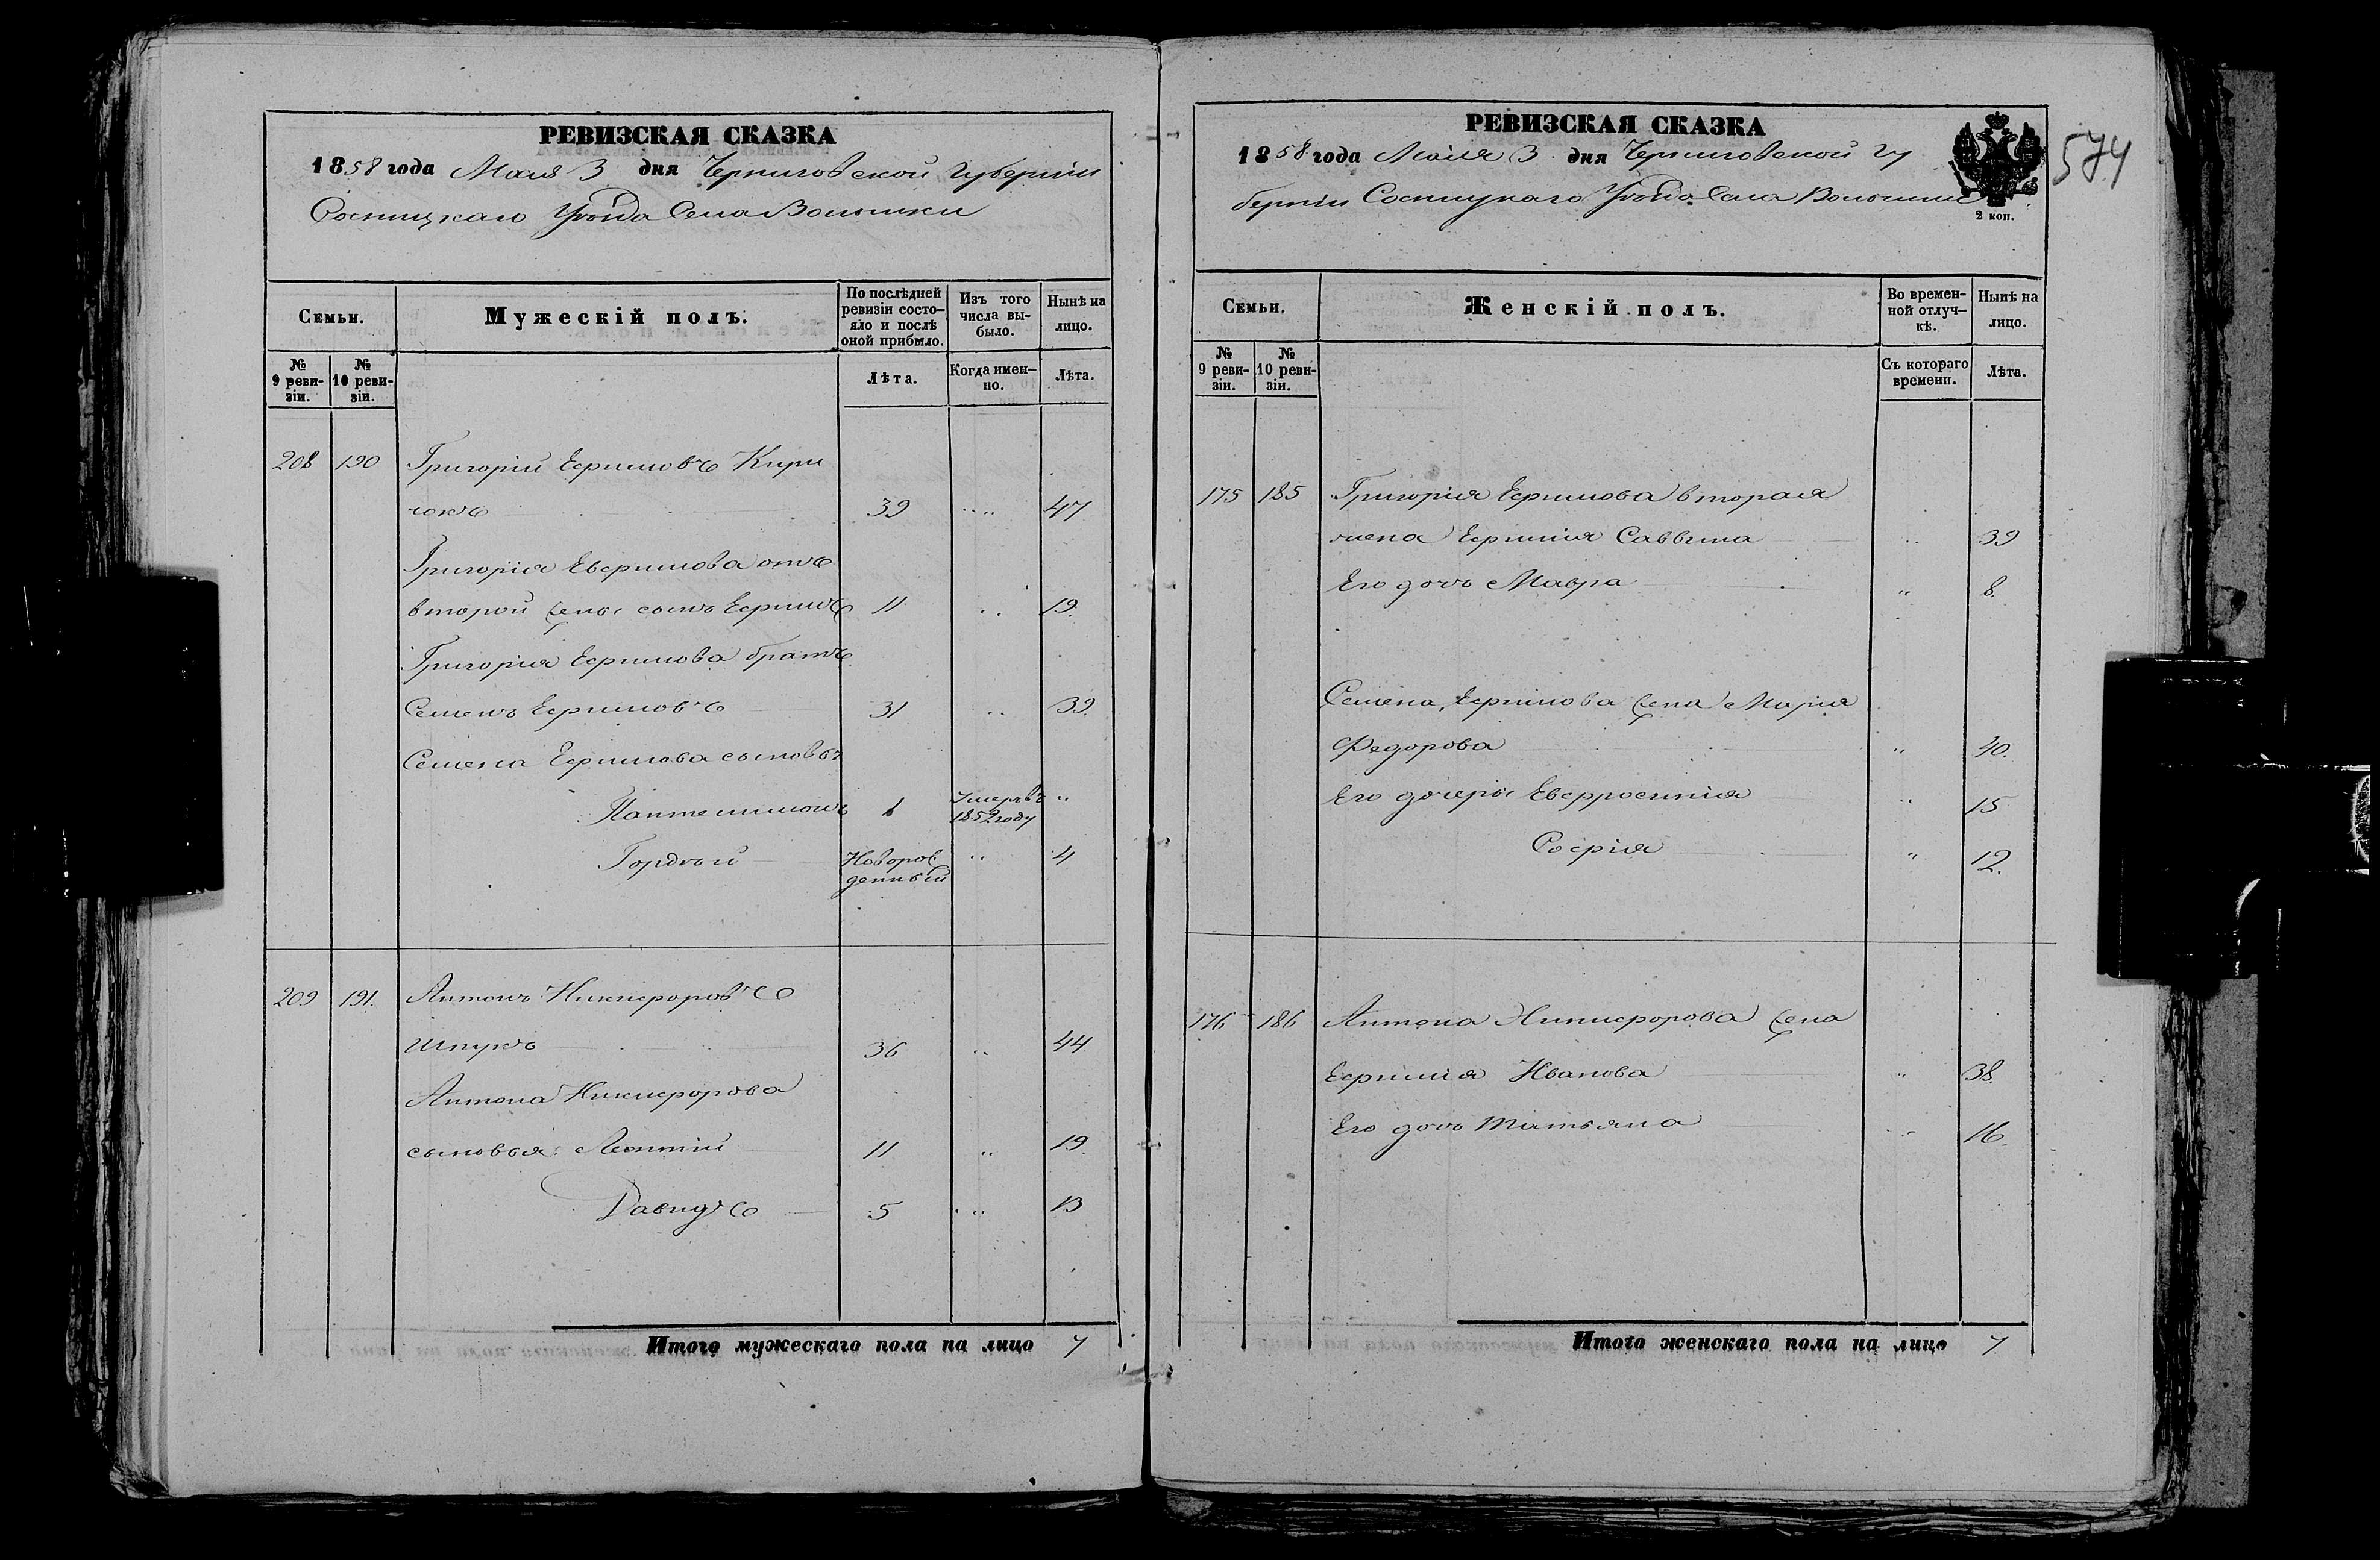 РЕВИЗСКАЯ СКАЗКА
1858 года Мая 3 дня Черниговской Губерніи
Сосницкаго Уѣзда Села Волынки
Семьи.
Мужескій полъ.
По послѣдней ревизіи состояло и послѣ оной прибыло.
Изъ того числа выбыло.
Нынѣ на лицо.
№ 9 ревизіи.
№ 10 ревизіи.
Лѣта.
Когда именно.
Лѣта.
208 190 Григорій Ефимовъ Кири
чокъ 39 „ 47
Григорія Евфимова отъ
второй жены сынъ Ефимъ 11 „ 19.
Григорія Ефимова братъ
Семенъ Ефимовъ 31 „ 39.
Семена Ефимова сыновья
Пантелимонъ 1 Умеръ въ 1852 году „
Гордѣй Новорожденный „ 4
209 191. Антонъ Никифоровъ
Шпукъ 36 „ 44
Антона Никифорова
сыновья: Леонтій 11 „ 19.
Давидъ 5 „ 13
Итого мужескаго пола на лицо 7
РЕВИЗСКАЯ СКАЗКА
574
1858 года Мая 3 дня Черниговской Гу
берніи Сосницкаго Уѣзда Села Волынки
2 коп.
Семьи.
Женскій полъ.
Во временной отлучкѣ.
Нынѣ на лицо.
№ 9 ревизіи.
№ 10 ревизіи.
Съ котораго времени.
Лѣта.
175 185 Григорія Ефимова вторая
жена Ефимія Саввина „ 39
Его дочь Мавра „ 8.
Семена Ефимова жена Марія
Федорова „ 40.
Его дочери Евфросинія „ 15
Софія „ 12.
176 186 Антона Никифорова жена
Ефимія Иванова „ 38.
Его дочь Татьяна „ 16
Итого женскаго пола на лицо 7.